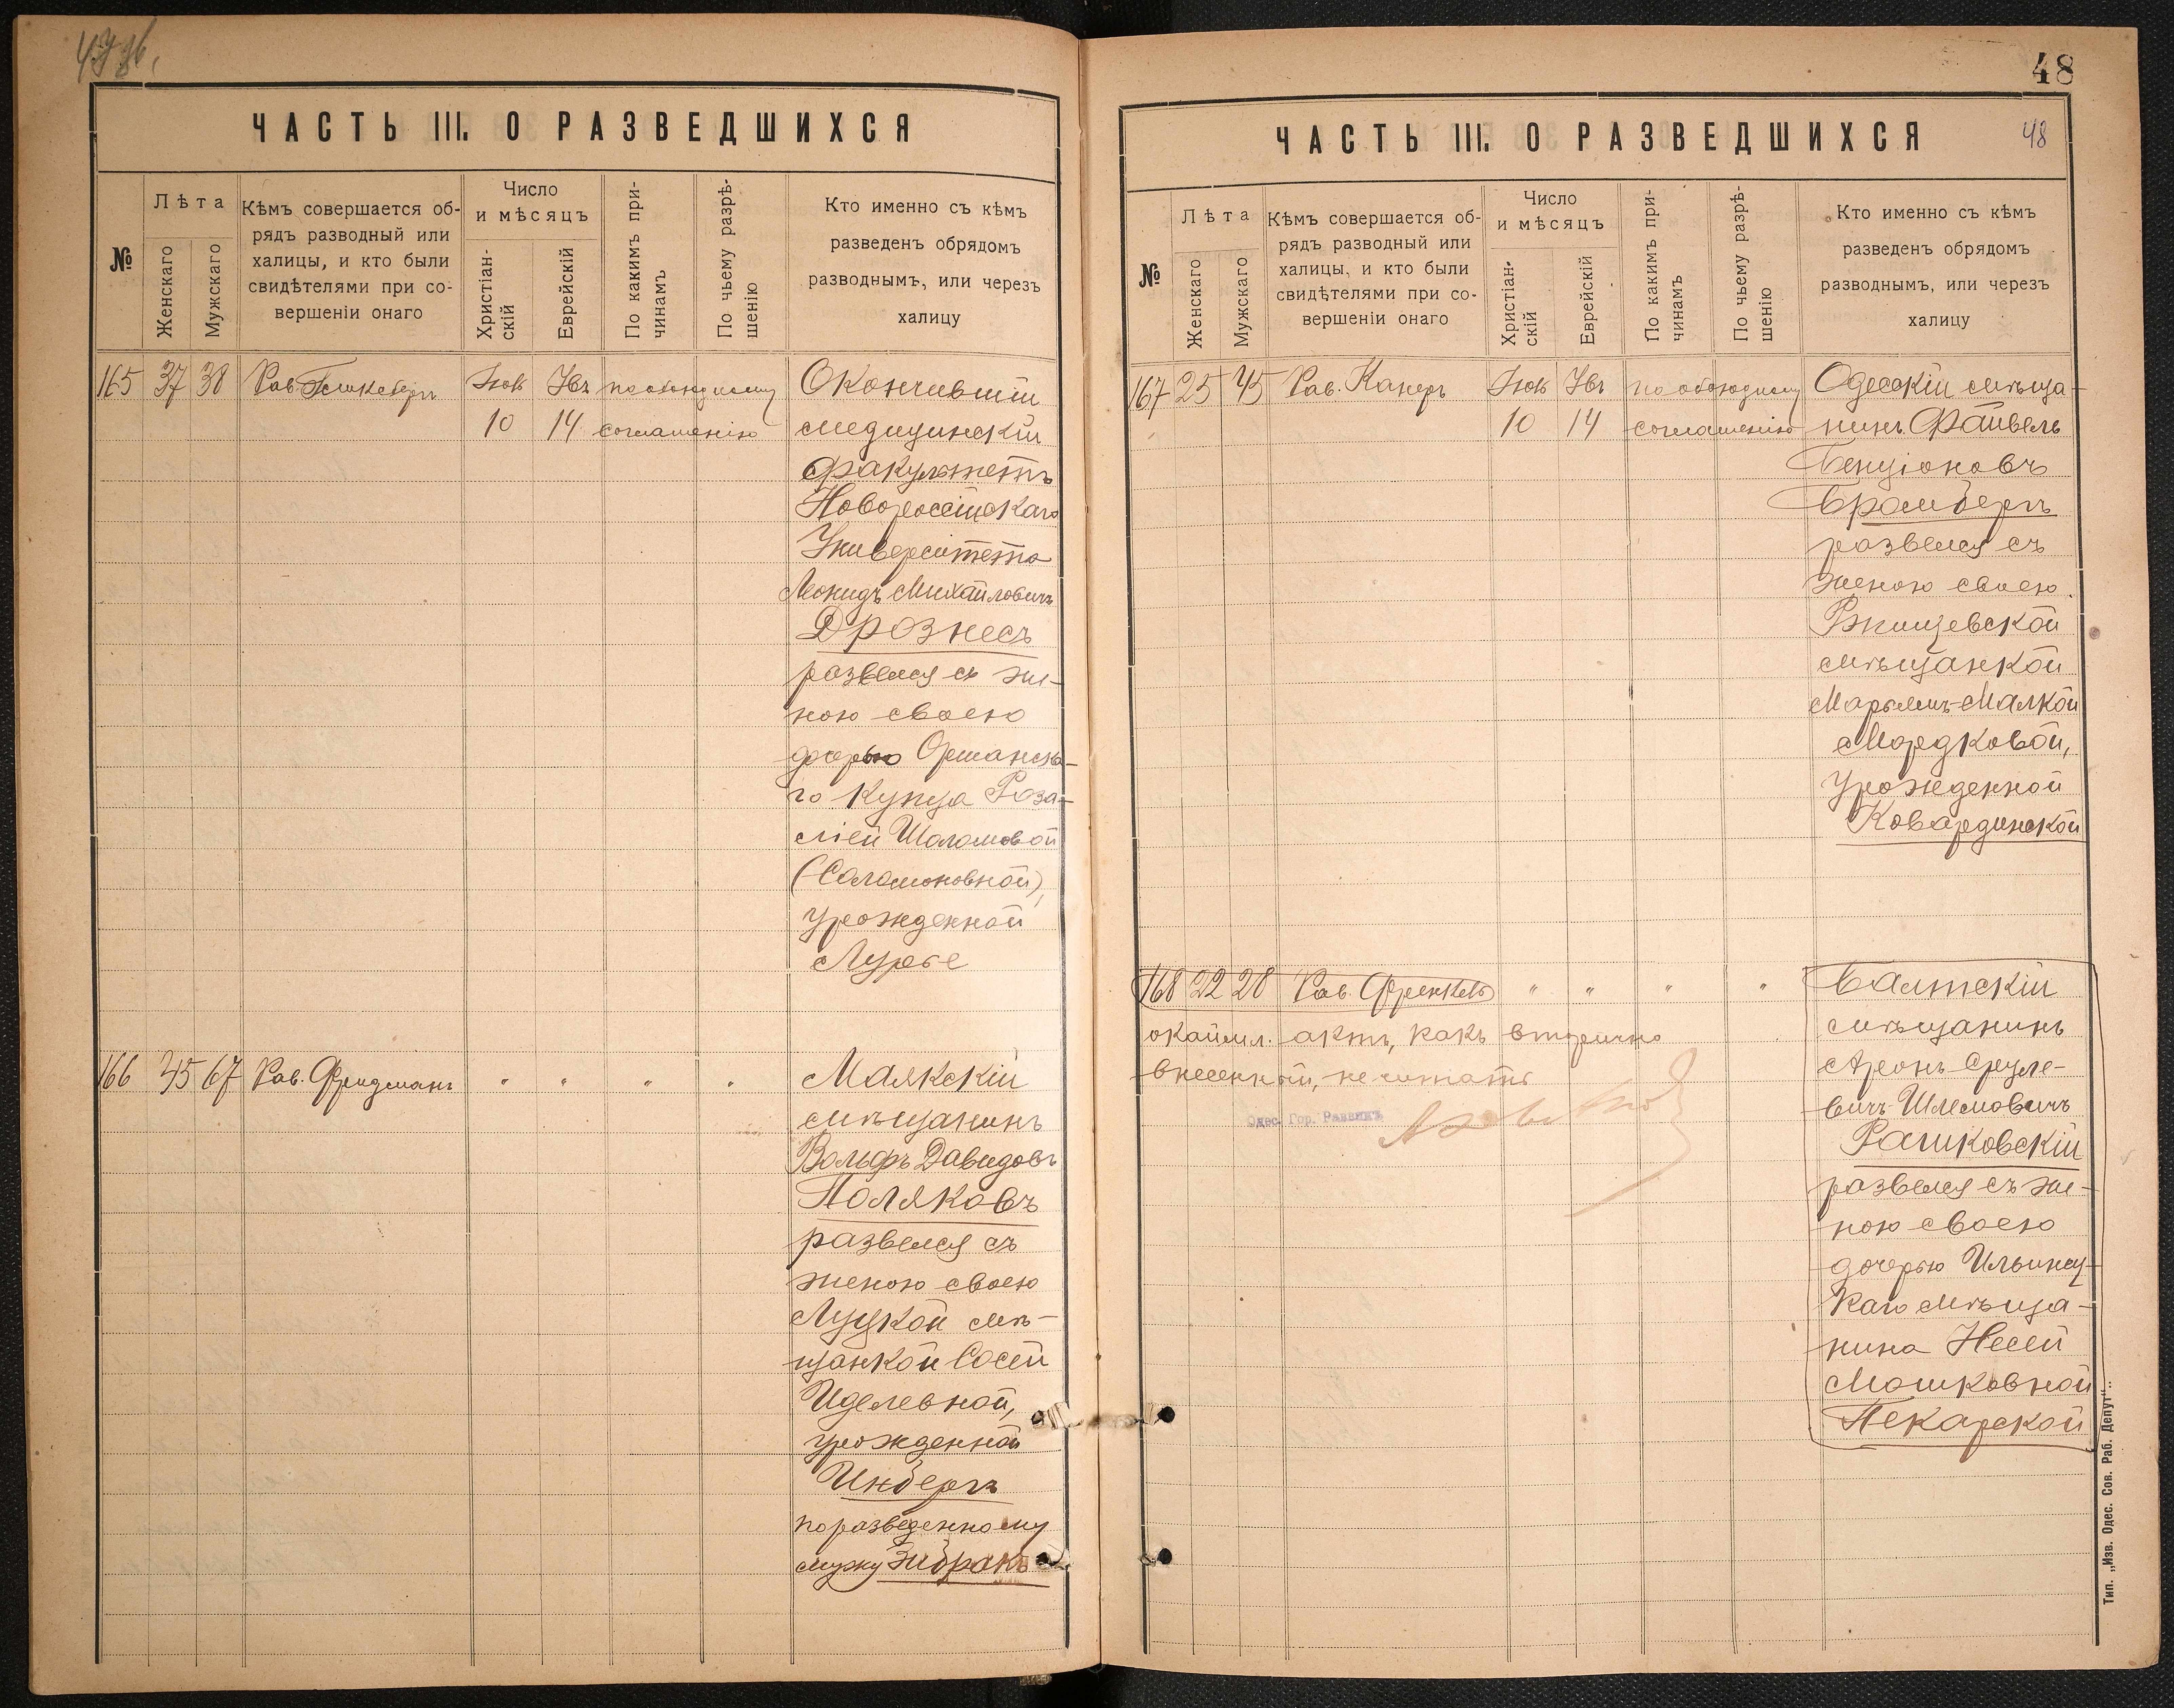 47 об.
ЧАСТЬ III. О РАЗВЕДШИХСЯ
№
Лѣта
Женскаго
Мужскаго
Кѣмъ совершается об-
рядъ разводный или
халицы, и кто были
свидѣтелями при со-
вершеніи онаго
Число
и мѣсяцъ
Христіан-
скій
Еврейскій
По какимъ при-
чинамъ
По чьему разрѣ-
шенію
Кто именно съ кѣмъ
разведенъ обрядомъ
разводнымъ, или черезъ
халицу
165 37 38 Рав. по обоюдному Окончившій
10 14 соглашенію медицинскій
факультетъ
Новороссійскаго
Университета
Леонидъ Михайловичъ
Дрознесъ
развелся съ же-
ною своею
дочерью Оршанска-
го купца Роза-
ліей Шоломовой
(Соломоновной),
урожденной
Лурье
166 45 67 Рав. Фридманъ " " " " Маякскій
мѣщанинъ
Вольфъ Давидовъ
Поляковъ
развелся съ
женою своею
Луцкой мѣ-
щанкой Сосей
Иделевной,
урожденной
Инбергъ
по разведенному
мужу Зибракъ
48
ЧАСТЬ III. О РАЗВЕДШИХСЯ
48
№
Лѣта
Женскаго
Мужскаго
Кѣмъ совершается об-
рядъ разводный или
халицы, и кто были
свидѣтелями при со-
вершеніи онаго
Число
и мѣсяцъ
Христіан-
скій
Еврейскій
По какимъ при-
чинамъ
По чьему разрѣ-
шенію
Кто именно съ кѣмъ
разведенъ обрядомъ
разводнымъ, или черезъ
халицу
167 25 45 Рав. Канеръ по обоюдному Одесскій мѣща-
10 14 соглашенію нинъ Файвель
Бенціоновъ
Бромбергъ
развелся съ
женою своею
Ржищевской
мѣщанкой
Марьемъ-Малкой
Мордковой,
урожденной
Ковардинской
168 22 28 Рав. Френкель " " " " Балтскій
окаймл. актъ, какъ вторично мѣщанинъ
внесенный, не читать Аронъ Сруле-
Одес. Гор. Раввинъ
вичъ Шлемовичъ
Рашковскій
развелся съ же-
ною своею
дочерью Ильинец-
каго мѣща-
нина Несей
Мошковной
Пекарской
Тип. „Изв. Одес. Сов. Раб. Депут“.